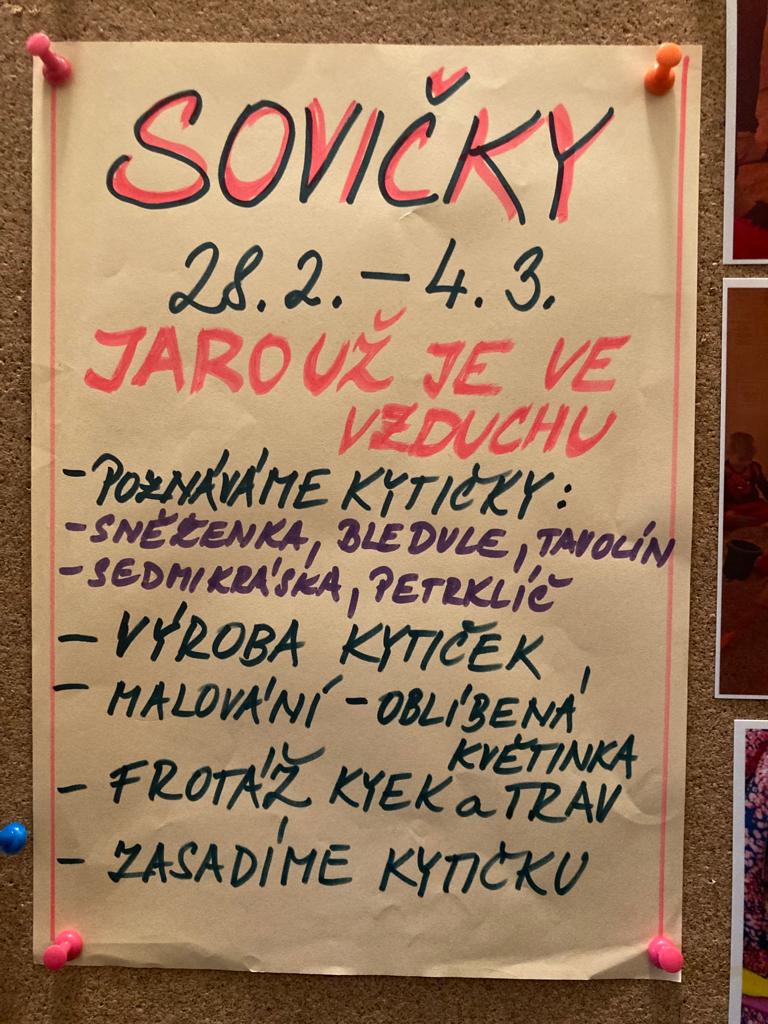 SOVIČKY
28.2. – 4.3.
JARO UŽ JE VE
VZDUCHU
- POZNÁVÁME KYTIČKY:
- SNĚŽENKA, BLEDULE, TAVOLÍN
- SEDMIKRÁSKA, PETRKLÍČ
- VÝROBA KYTIČEK
- MALOVÁNÍ - OBLÍBENÁ
KVĚTINKA
- FROTÁŽ KYEK a TRAV
- ZASADÍME KYTIČKU